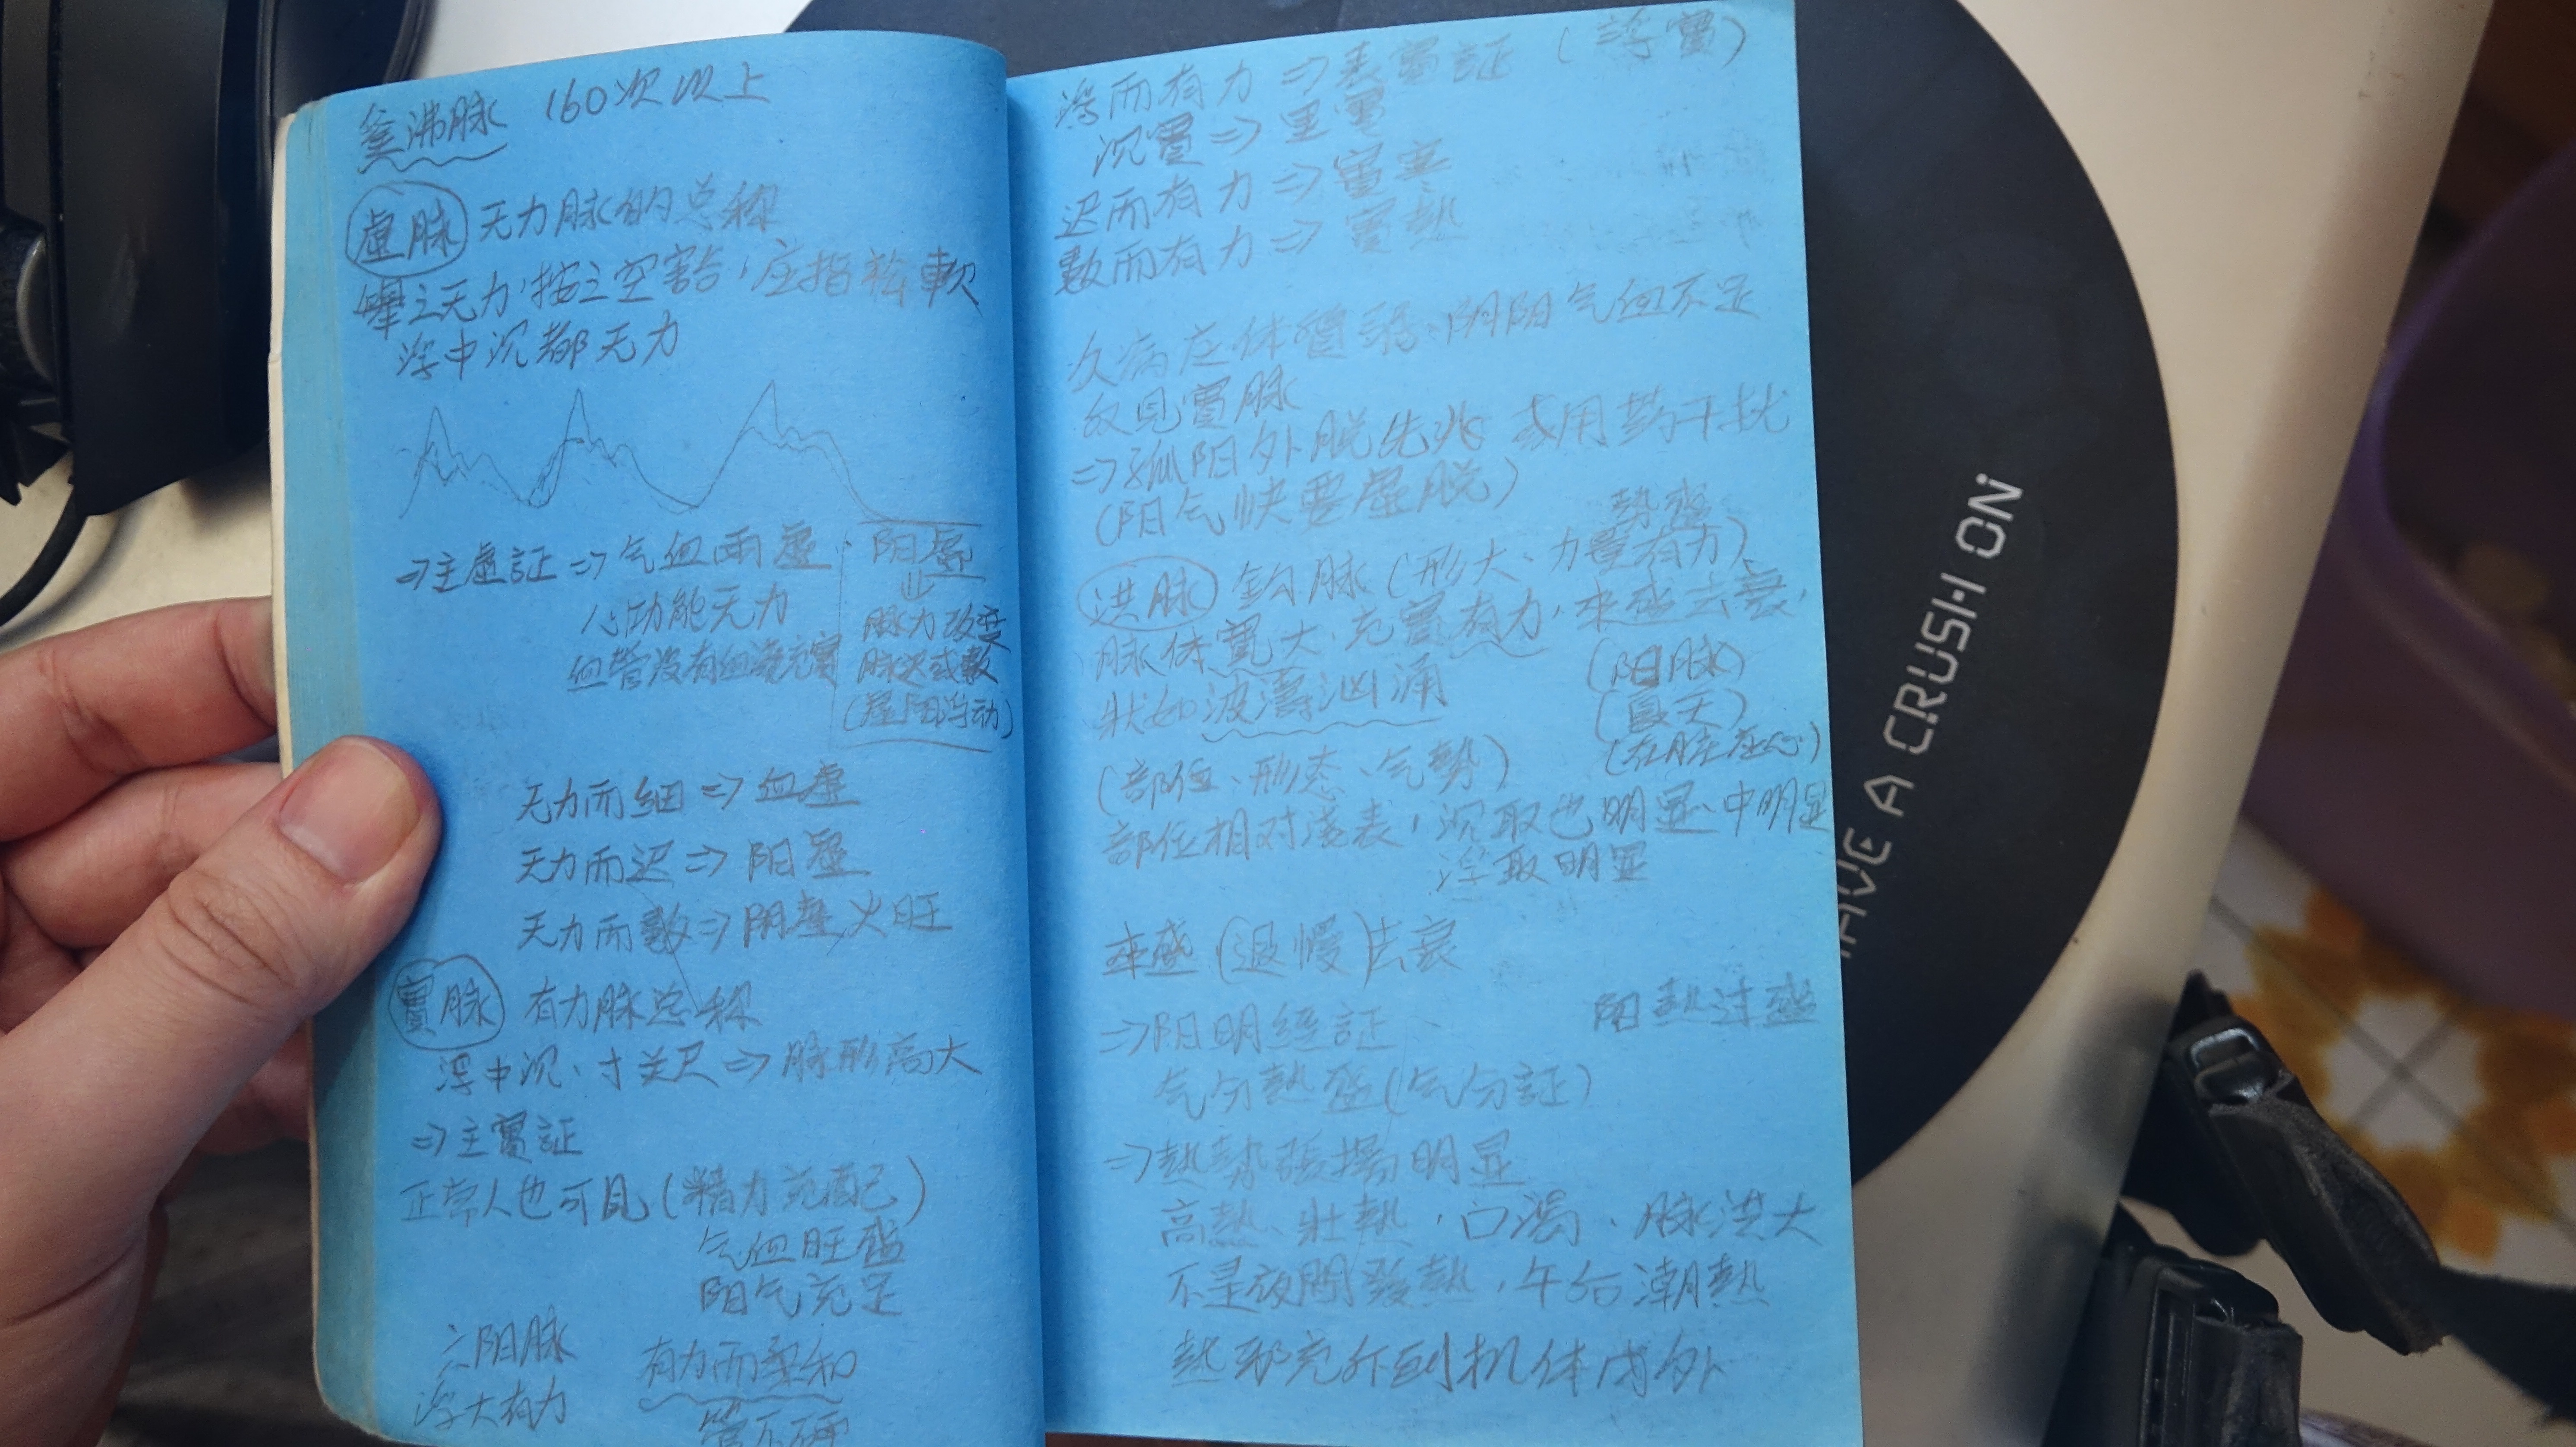 釜沸脉 160次以上
虚脉 无力脉的总称
舉之无力,按之空豁,应指松軟
浮中沉都无力
⇒主虚証⇒气血兩虚、
心功能无力
血管没有血液充實
阳虚
⇓
脉力改变
脉迟或數
(虚阳浮动)
无力而細⇒血虚
无力而迟⇒阳虚
无力而數⇒阴虚火旺
實脉 有力脉总称
浮中沉、寸关尺⇒脉形高大
⇒主實証
正常人也可見(精力充沛)
气血旺盛
阳气充足
六阳脉
浮大有力
有力而柔和
管不硬
浮而有力⇒表實証(浮實)
沉實⇒里實
迟而有力⇒實寒
數而有力⇒實熱
久病应体質弱、阴阳气血不足
故見實脉
⇒孤阳外脱先兆 或用药干扰
(阳气快要虚脱)
熱盛
洪脉 鈎脉(形大、力量有力)
脉体寬大、充實有力,來盛去衰,
狀如波濤汹涌
(阳脉)
(夏天)
(在脏应心)
(部位、形态、气勢)
部位相对淺表,沉取也明显、中明显
浮取明显
來盛(退慢)去衰
⇒阳明經証
阳熱过盛
气分熱盛(气分証)
⇒熱勢張揚明显
高熱、壯熱,口渴、脉洪大
不是夜間發熱,午后潮熱
熱邪充斥到机体内外
HAVE A CRUSH ON